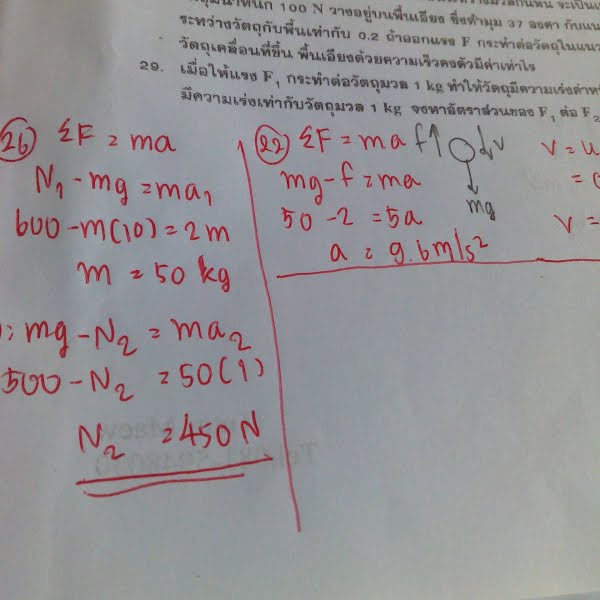 100 N วางอยู่บนพื้นเอียง ซึ่งทำมุม 37 องศา กับแนว
ระหว่างวัตถุกับพื้นเท่ากับ 0.2 ถ้าออกแรง F กระทำต่อวัตถุในแนว
วัตถุเคลื่อนที่ขึ้น พื้นเอียงด้วยความเร็วคงตัวมีค่าเท่าไร
29. เมื่อให้แรง F₁ กระทำต่อวัตถุมวล 1 kg ทำให้วัตถุมีความเร่งค่าหนึ่ง
มีความเร่งเท่ากับวัตถุมวล 1 kg จงหาอัตราส่วนของ F₁ ต่อ F₂
26 ΣF = ma
N₁ - mg = ma₁
600 - m(10) = 2m
m = 50 kg
: mg - N₂ = ma₂
500 - N₂ = 50(1)
N₂ = 450 N
22 ΣF = ma
mg - f = ma
50 - 2 = 5a
a = 9.6 m/s²
f↑ ↓v
mg
v = u
=
v =